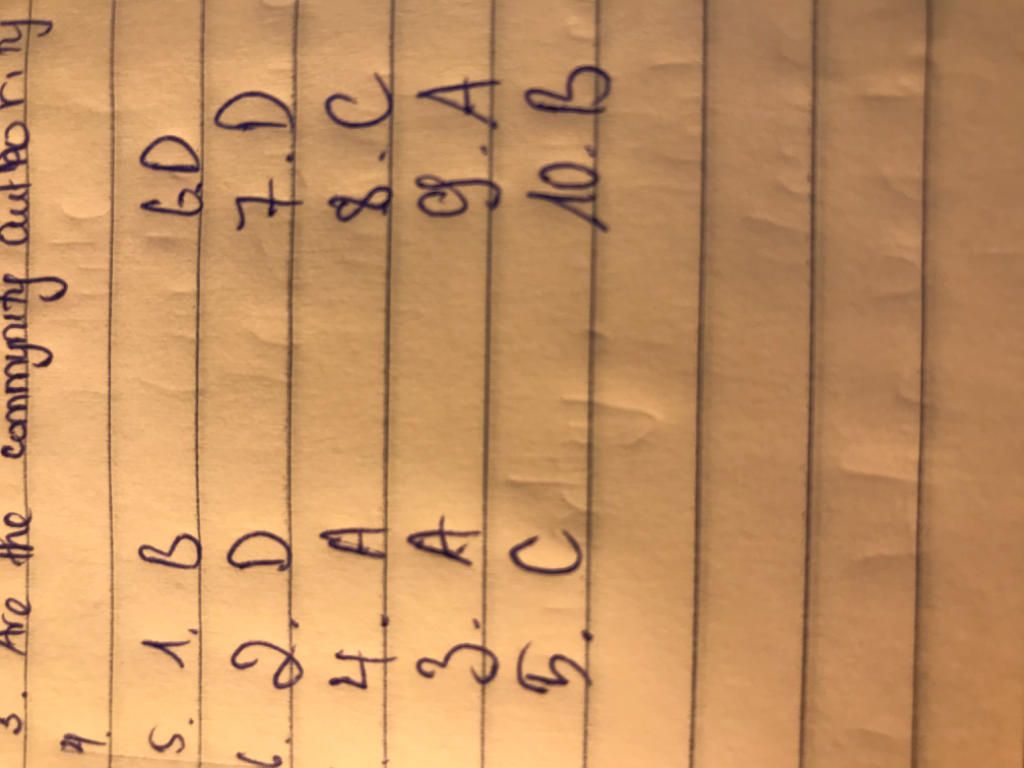 3. Are the commynity authority
4.
5. 1. B 6. D
6. 2. D 7. D
4. A 8. C
3. A 9. A
5. C 10. B